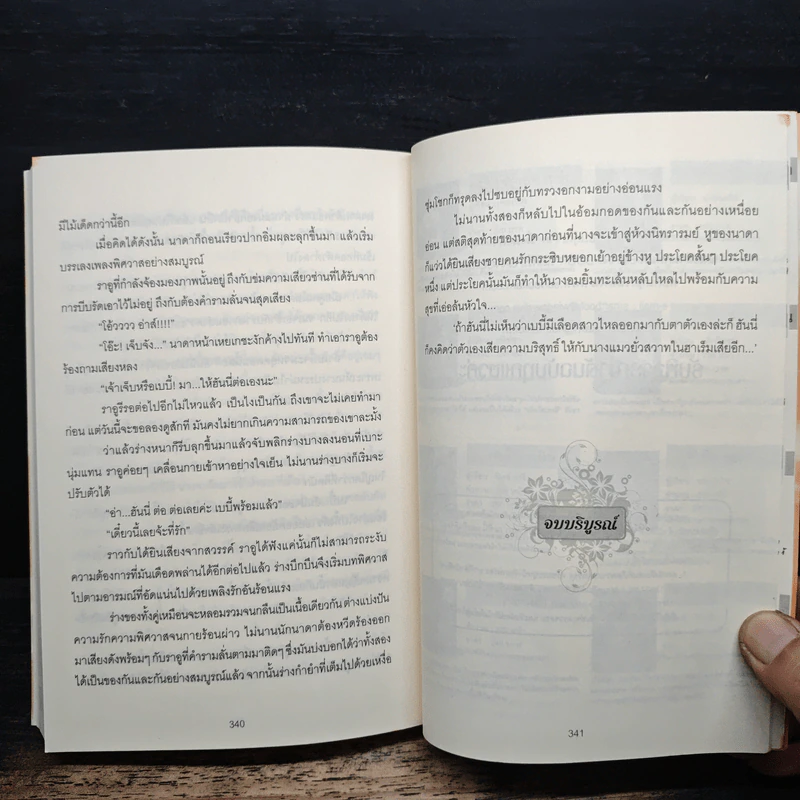 มีไม้เด็ดกว่านี้อีก
เมื่อคิดได้ดังนั้น นาดาก็ถอนเรียวปากอิ่มผละลุกขึ้นมา แล้วเริ่ม
บรรเลงเพลงพิศวาสอย่างสมบูรณ์
ราอูที่กำลังจ้องมองภาพนั้นอยู่ ถึงกับข่มความเสียวซ่านที่ได้รับจาก
การบีบรัดเอาไว้ไม่อยู่ ถึงกับต้องคำรามลั่นจนสุดเสียง
“โอ้วววว อ่าส์!!!!”
“โอ๊ะ! เจ็บจัง...” นาดาหน้าเหยเกชะงักค้างไปทันที ทำเอาราอูต้อง
ร้องถามเสียงหลง
“เจ้าเจ็บหรือเบบี้! มา...ให้ฮันนี่ต่อเองนะ”
ราอูรีรอต่อไปอีกไม่ไหวแล้ว เป็นไงเป็นกัน ถึงเขาจะไม่เคยทำมา
ก่อน แต่วันนี้จะขอลองดูสักที มันคงไม่ยากเกินความสามารถของเขาละมั้ง
ว่าแล้วร่างหนาก็รีบลุกขึ้นมาแล้วจับพลิกร่างบางลงนอนที่เบาะ
นุ่มแทน ราอูค่อยๆ เคลื่อนกายเข้าหาอย่างใจเย็น ไม่นานร่างบางก็เริ่มจะ
ปรับตัวได้
“อ่า...ฮันนี่ ต่อ ต่อเลยค่ะ เบบี้พร้อมแล้ว”
“เดี๋ยวนี้เลยจ้ะที่รัก”
ราวกับได้ยินเสียงจากสวรรค์ ราอูได้ฟังแค่นั้นก็ไม่สามารถระงับ
ความต้องการที่มันเดือดพล่านได้อีกต่อไปแล้ว ร่างบึกบึนจึงเริ่มบทพิศวาส
ไปตามอารมณ์ที่อัดแน่นไปด้วยเพลิงรักอันร้อนแรง
ร่างของทั้งคู่เหมือนจะหลอมรวมจนกลืนเป็นเนื้อเดียวกัน ต่างแบ่งปัน
ความรักความพิศวาสจนกายร้อนผ่าว ไม่นานนักนาดาต้องหวีดร้องออก
มาเสียงดังพร้อมๆ กับราอูที่คำรามลั่นตามมาติดๆ ซึ่งมันบ่งบอกได้ว่าทั้งสอง
ได้เป็นของกันและกันอย่างสมบูรณ์แล้ว จากนั้นร่างกำยำที่เต็มไปด้วยเหงื่อ
340
ชุ่มโชกก็ทรุดลงไปซบอยู่กับทรวงอกงามอย่างอ่อนแรง
ไม่นานทั้งสองก็หลับไปในอ้อมกอดของกันและกันอย่างเหนื่อย
อ่อน แต่สติสุดท้ายของนาดาก่อนที่นางจะเข้าสู่ห้วงนิทรารมย์ หูของนาดา
ก็แว่วได้ยินเสียงชายคนรักกระซิบหยอกเย้าอยู่ข้างหู ประโยคสั้นๆ ประโยค
หนึ่ง แต่ประโยคนั้นมันก็ทำให้นางอมยิ้มทะเล้นหลับไหลไปพร้อมกับความ
สุขที่เอ่อล้นหัวใจ...
‘ถ้าฮันนี่ไม่เห็นว่าเบบี้มีเลือดสาวไหลออกมากับตาตัวเองล่ะก็ ฮันนี่
ก็คงคิดว่าตัวเองเสียความบริสุทธิ์ ให้กับนางแมวยั่วสวาทในฮาเร็มเสียอีก...’
จบบริบูรณ์
341